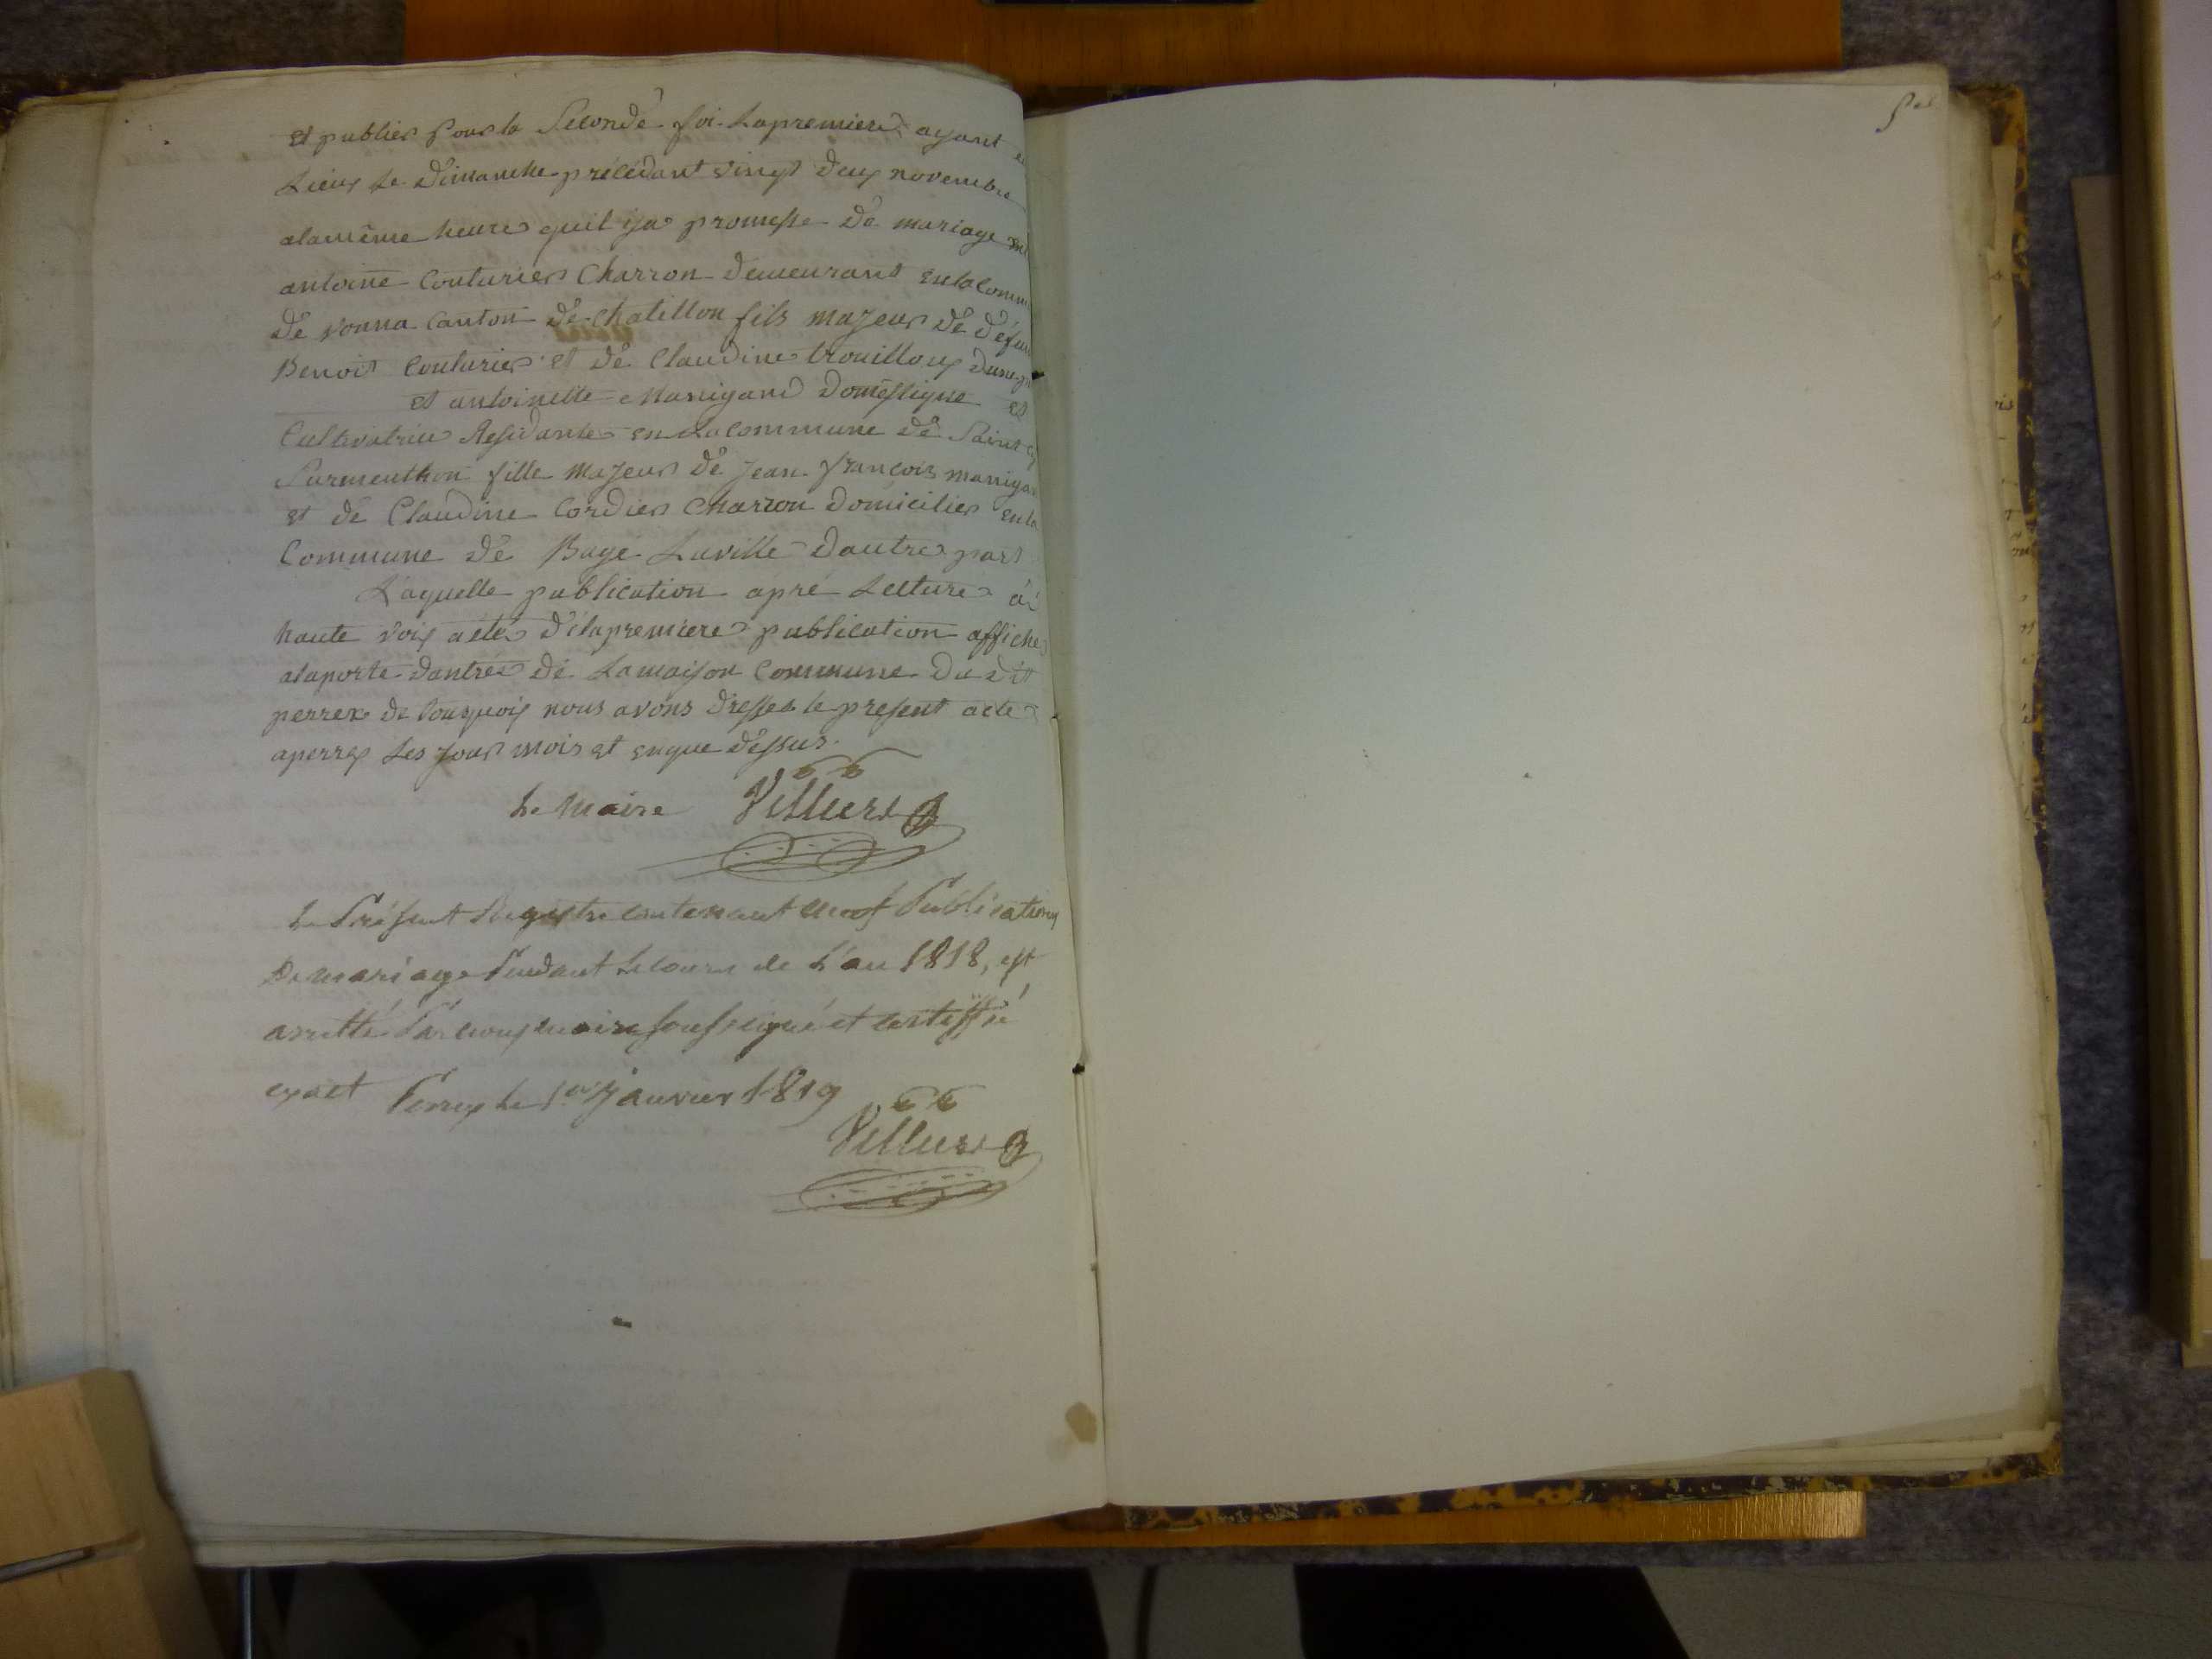 et publier pour la Seconde foi. la premiere ayant
Lieux le dimanche précédant vingt deux novembre
alamême heure quil ya promesse de mariage
antoine Couturier Charron demeurant en la Comm
de vonna Canton de Chatillon fils majeur de défun
Benoit Couturier et de Claudine trouilloux dune p
et antoinette Manigand domestique et
Cultivatrice Residante en La Commune de Saint Cy
Surmenthon fille majeur de jean françois manigan
et de Claudine Cordier Charron domicilier en la
Commune de Bage Laville dautre part
Laquelle publication apré Lecture a
haute voix a été de la premiere publication affiche
ala porte dantrée de La maison Commune du dit
perrex de Couquoix nous avons dresser le present acte
a perrex Les jour mois et en que dessus.
Le Maire
Le Présent Registre contenant neuf Publications
De mariage Pendant le cours de L'an 1818, est
arretté Par nous maire soussigné et certiffié
exact Perrex le 1er Janvier 1819